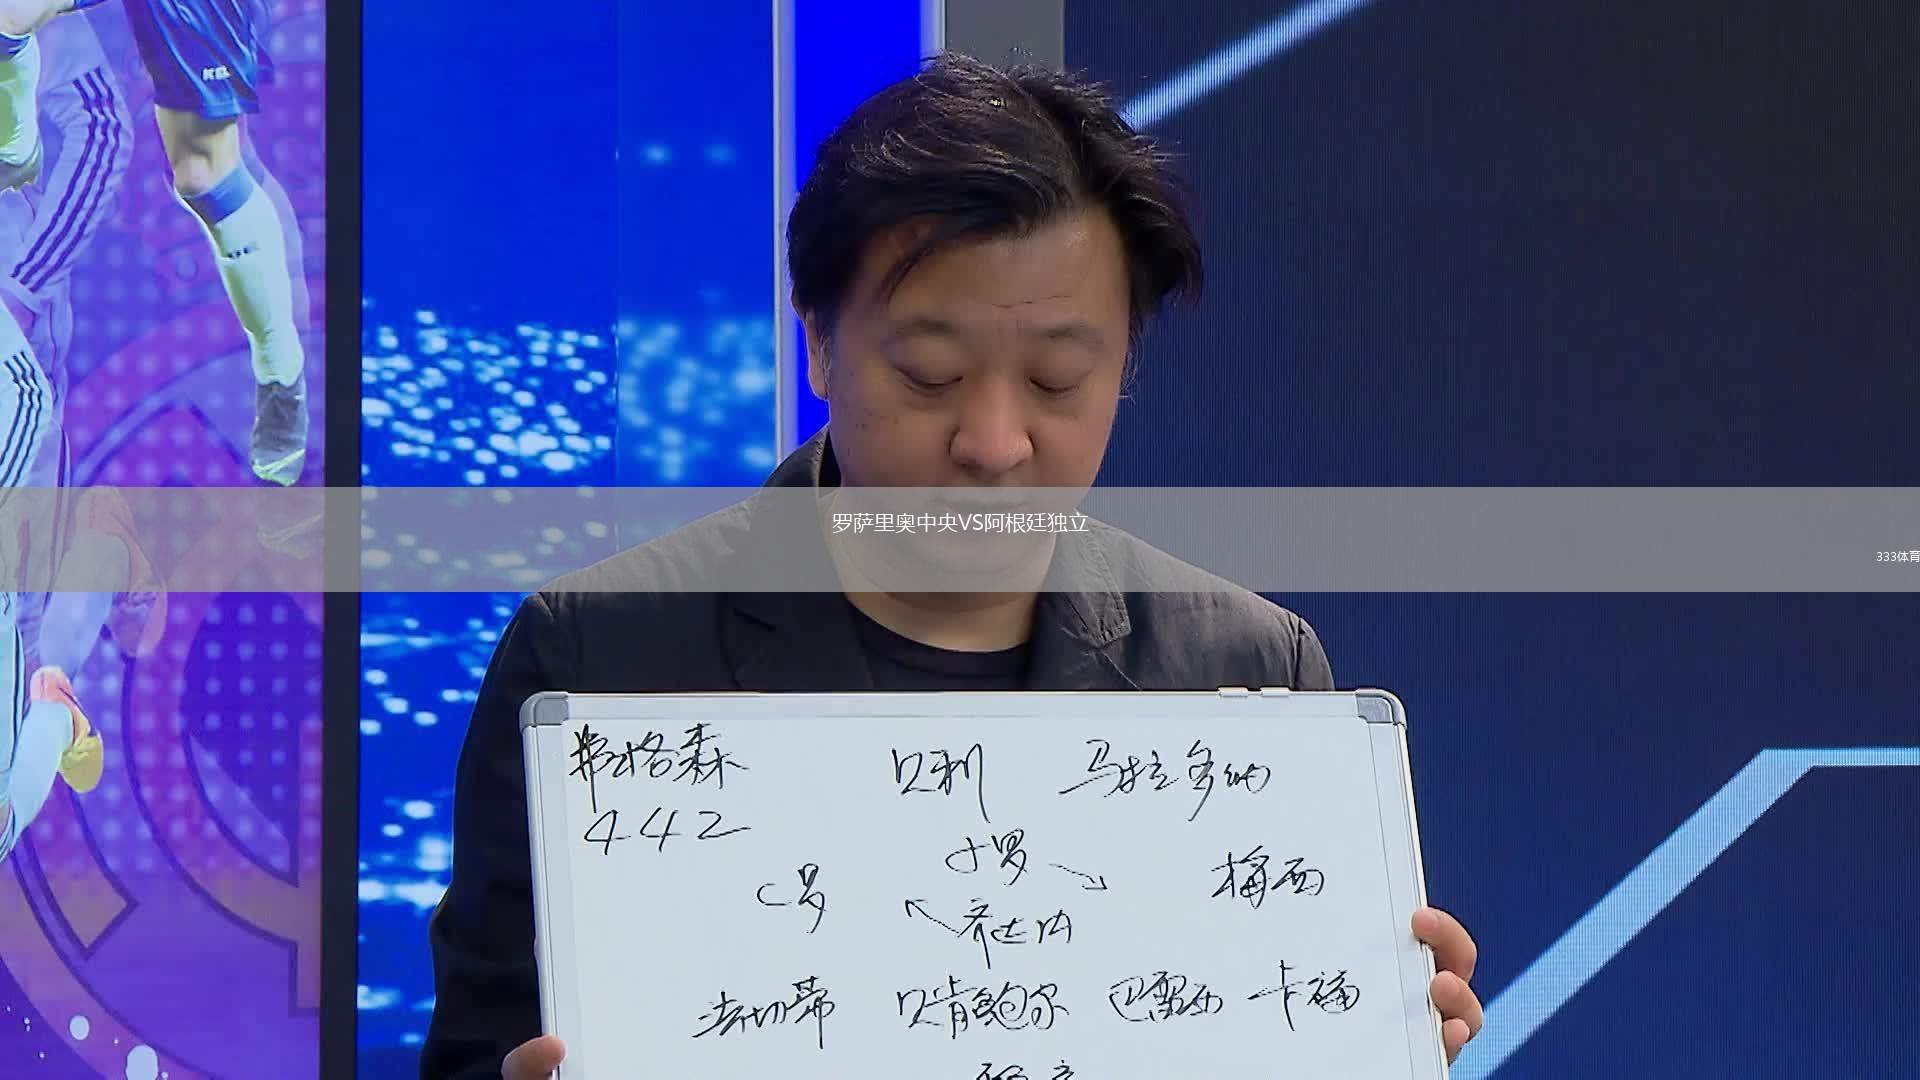 罗萨里奥中央VS阿根廷独立
333体育
弗格森 贝利 马拉多纳
442
小罗
C罗 梅西
齐达内
法切蒂 贝肯鲍尔 巴雷西 卡福